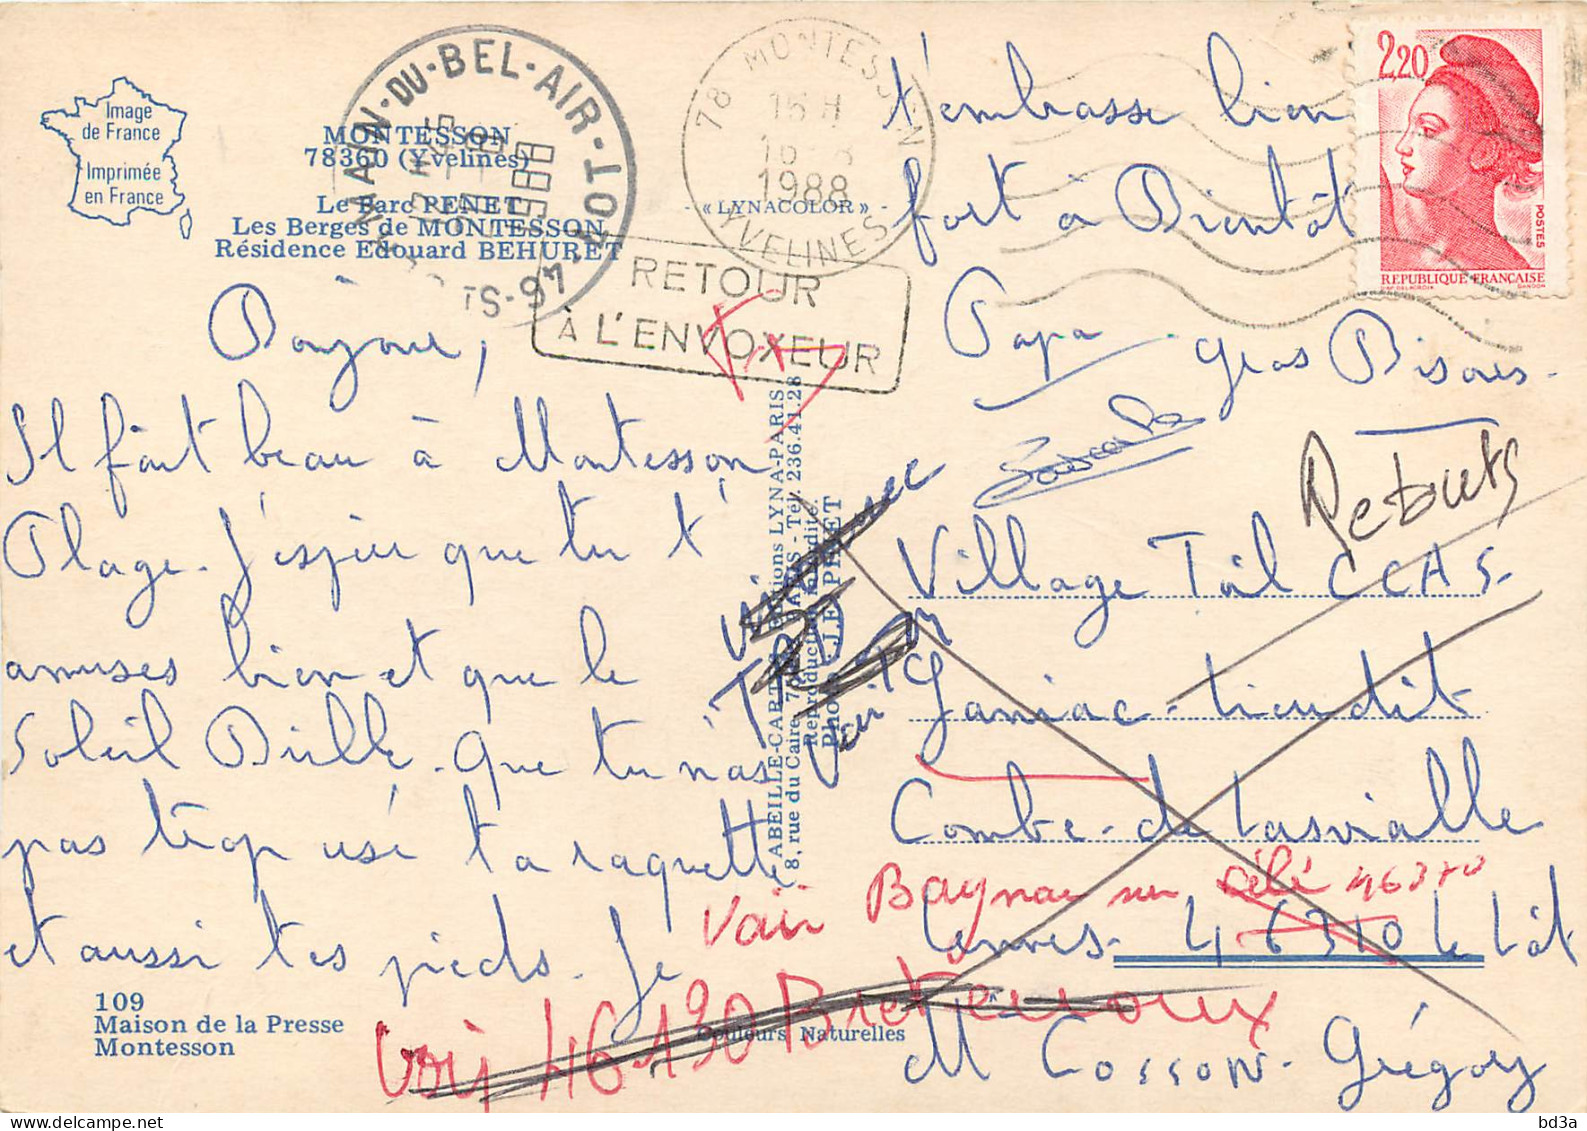 Image
de France
Imprimée
en France
MONTESSON
78360 (Yvelines)
Le Parc PENET
Les Berges de MONTESSON
Résidence Edouard BEHURET
MAIN-DU-BEL-AIR-LOT
46-S
1988
78 MONTESSON
15 H
16 8
1988
YVELINES
- « LYNACOLOR » -
RETOUR
À L'ENVOYEUR
2,20
POSTES
REPUBLIQUE FRANÇAISE
Bonjour,
Il fait beau à Montesson
Plage. J'espère que tu t'
amuses bien et que le
Soleil Brille. Que tu n'as
pas trop usé ta raquette
et aussi tes pieds. Je
t'embrasse bien
fort à Bientôt
Papa
Gros Bisous.
Rebuts
ABEILLE-CARTES Éditions LYNA-PARIS
8, rue du Caire, 75002 PARIS - Tél. 236.41.28
Reproduction interdite.
Photo : J.E. PENET
Village Toil CCAS-
Janiac-Lieudit
Combe-de Lasvialle
Voir Bagnac sur Célé 46270
46310 le Lot
Voir 46-130 Bretenoux
M Cosson-Grégory
109
Maison de la Presse
Montesson
Couleurs Naturelles